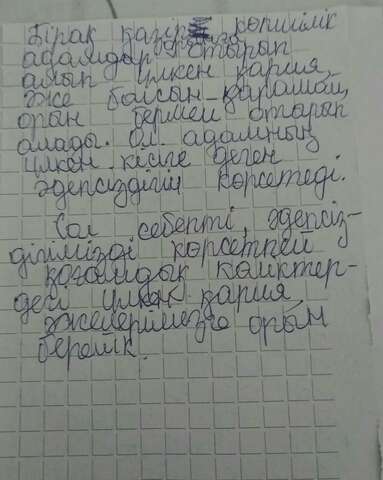 Бірақ қазір көпшілік
адамдар отырып
алып үлкен қария,
әже болсын қарамай,
орын бермей отырып
алады. Ол адамның
үлкен кісіге деген
әдепсіздігін көрсетеді.
Сол себепті, әдепсіз-
дігімізді көрсетпей
қоғамдық көліктер-
де үлкен қария,
әжелерімізге орын
берейік.